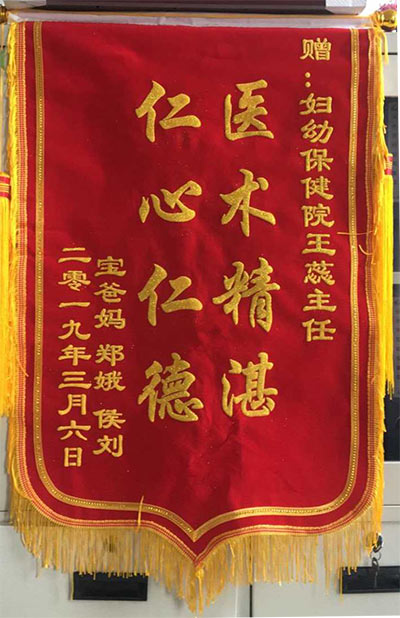 赠:妇幼保健院王蕊主任
医术精湛
仁心仁德
宝爸妈 郑娥 侯刘
二零一九年三月六日